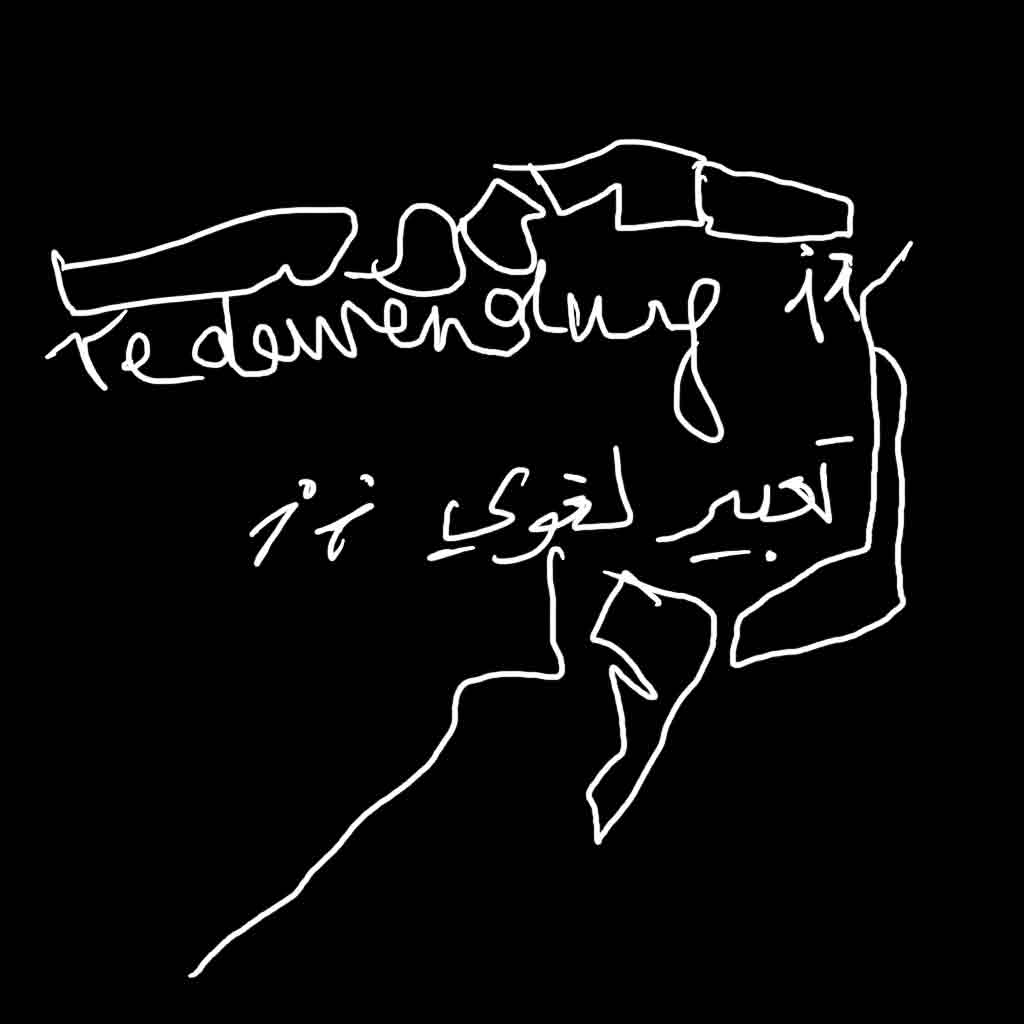 redewendung
تعبير لغوي